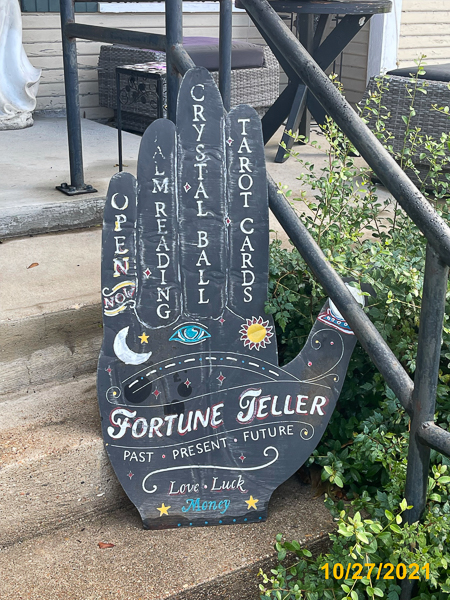 OPEN
NOW
ALM READING
CRYSTAL BALL
TAROT CARDS
FORTUNE TELLER
PAST · PRESENT · FUTURE
Love · Luck
Money
10/27/2021